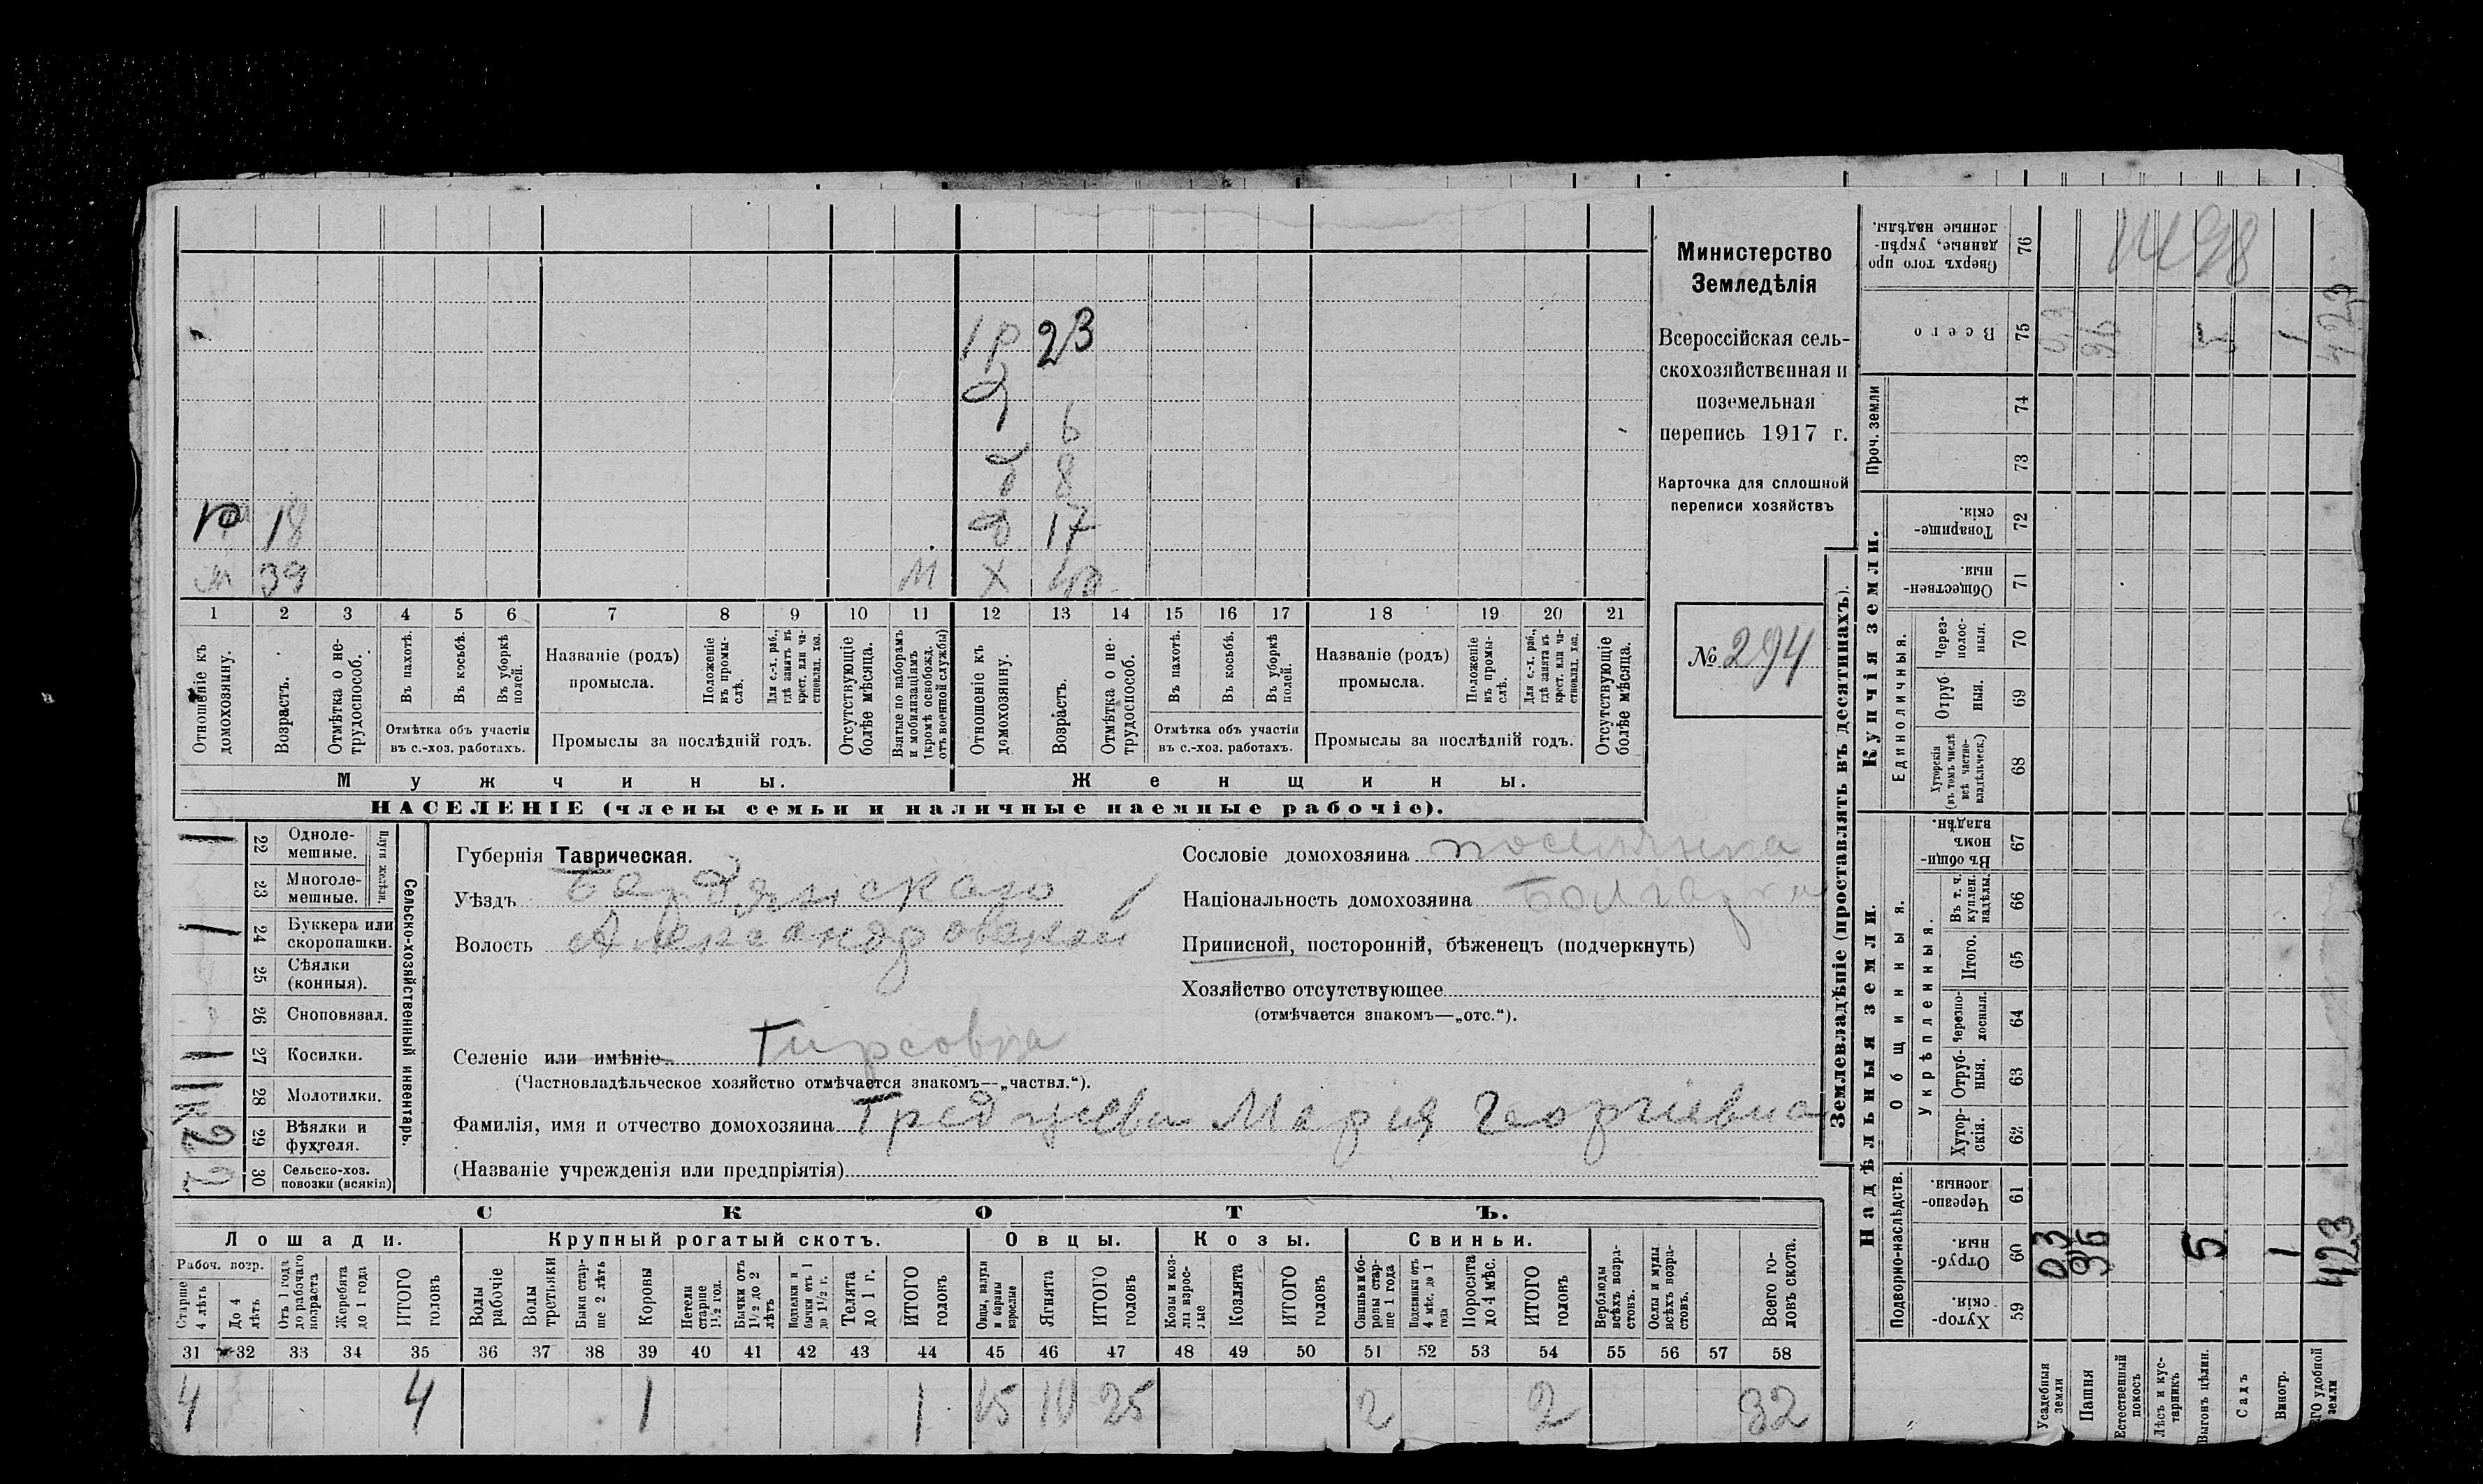 Министерство
Земледѣлія
Всероссійская сель-
скохозяйственная и
поземельная
перепись 1917 г.
Карточка для сплошной
переписи хозяйствъ
№ 294
1 р 23
д 6
д 8
р 18 д 17
м 39 м х 40
1 2 3 4 5 6 7 8 9 10 11 12 13 14 15 16 17 18 19 20 21
Отношеніе къ домохозяину.
Возрастъ.
Отмѣтка о не-трудоспособ.
Въ пахотѣ.
Въ косьбѣ.
Въ уборкѣ полей.
Отмѣтка объ участіи
въ с.-хоз. работахъ.
Названіе (родъ)
промысла.
Положеніе въ промы-слѣ.
Для с.-х. раб., гдѣ занятъ въ крест. или ча-стновлад. хоз.
Промыслы за послѣдній годъ.
Отсутствующіе болѣе мѣсяца.
Взятые по наборамъ и мобилизаціямъ (кромѣ освобожд. отъ военной службы)
Отношеніе къ домохозяину.
Возрастъ.
Отмѣтка о не-трудоспособ.
Въ пахотѣ.
Въ косьбѣ.
Въ уборкѣ полей.
Отмѣтка объ участіи
въ с.-хоз. работахъ.
Названіе (родъ)
промысла.
Положеніе въ промы-слѣ.
Для с.-х. раб., гдѣ занята въ крест. или ча-стновлад. хоз.
Промыслы за послѣдній годъ.
Отсутствующіе болѣе мѣсяца.
Мужчины. Женщины.
НАСЕЛЕНІЕ (члены семьи и наличные наемные рабочіе).
Сельско-хозяйственный инвентарь.
Плуги желѣзн.
1 22 Одноле-мешные.
23 Многоле-мешные.
1 24 Буккера или скоропашки.
25 Сѣялки (конныя).
26 Сноповязал.
1 27 Косилки.
28 Молотилки.
29 Вѣялки и фухтеля.
2 30 Сельско-хоз. повозки (всякія)
Губернія Таврическая.
Уѣздъ Бердянскаго
Волость Александровской
Селеніе или имѣніе Гирсовка
(Частновладѣльческое хозяйство отмѣчается знакомъ—„частвл.“).
Фамилія, имя и отчество домохозяина Мария Георгіевна
(Названіе учрежденія или предпріятія)
Сословіе домохозяина поселянка
Національность домохозяина Болгарки
Приписной, посторонній, бѣженецъ (подчеркнуть)
Хозяйство отсутствующее
(отмѣчается знакомъ—„отс.“).
СКОТЪ.
Лошади. Крупный рогатый скотъ. Овцы. Козы. Свиньи.
Рабоч. возр.
Старше 4 лѣтъ
До 4 лѣтъ
Отъ 1 года до рабочаго возраста
Жеребята до 1 года
ИТОГО головъ
Волы рабочіе
Волы третьяки
Быки стар-ше 2 лѣтъ
Коровы
Нетели старше 1½ год.
Бычки отъ 1½ до 2 лѣтъ
Подтелки и бычки отъ 1 до 1½ г.
Телята до 1 г.
ИТОГО головъ
Овцы, валухи и бараны взрослые
Ягнята
ИТОГО головъ
Козы и коз-лы взрос-лые
Козлята
ИТОГО головъ
Свиньи и бо-ровы стар-ше 1 года
Подсвинки отъ 4 мѣс. до 1 года
Поросята до 4 мѣс.
ИТОГО головъ
Верблюды всѣхъ возра-стовъ.
Ослы и мулы всѣхъ возра-стовъ.
Всего го-ловъ скота.
31 32 33 34 35 36 37 38 39 40 41 42 43 44 45 46 47 48 49 50 51 52 53 54 55 56 57 58
4 4 1 1 15 10 25 2 2 32
Землевладѣніе (проставлять въ десятинахъ).
Купчія земли.
Надѣльныя земли.
Проч. земли
Единоличныя.
Общинныя.
Укрѣпленныя.
Подворно-наслѣдств.
Сверхъ того про данные, укрѣп-ленные надѣлы. 76 1498
Всего 75 03 36 5 1 423
74
73
Товарище-скія. 72
Обществен-ныя. 71
Через-полос-ныя. 70
Отруб ныя. 69
Хуторскія (въ томъ числѣ всѣ частно-владѣльческ.) 68
Въ общин-номъ владѣн. 67
Въ т. ч. куплен. надѣлы. 66
Итого. 65
Черезпо-лосныя. 64
Отруб-ныя. 63
Хутор-скія. 62
Черезпо-лосныя. 61
Отруб-ныя. 60 03 36 5 1 423
Хутор-скія. 59
Усадебныя земли
Пашня
Естественный покосъ
Лѣсъ и кус-тарникъ
Выгонъ цѣлин.
Садъ
Виногр.
ГО удобной земли